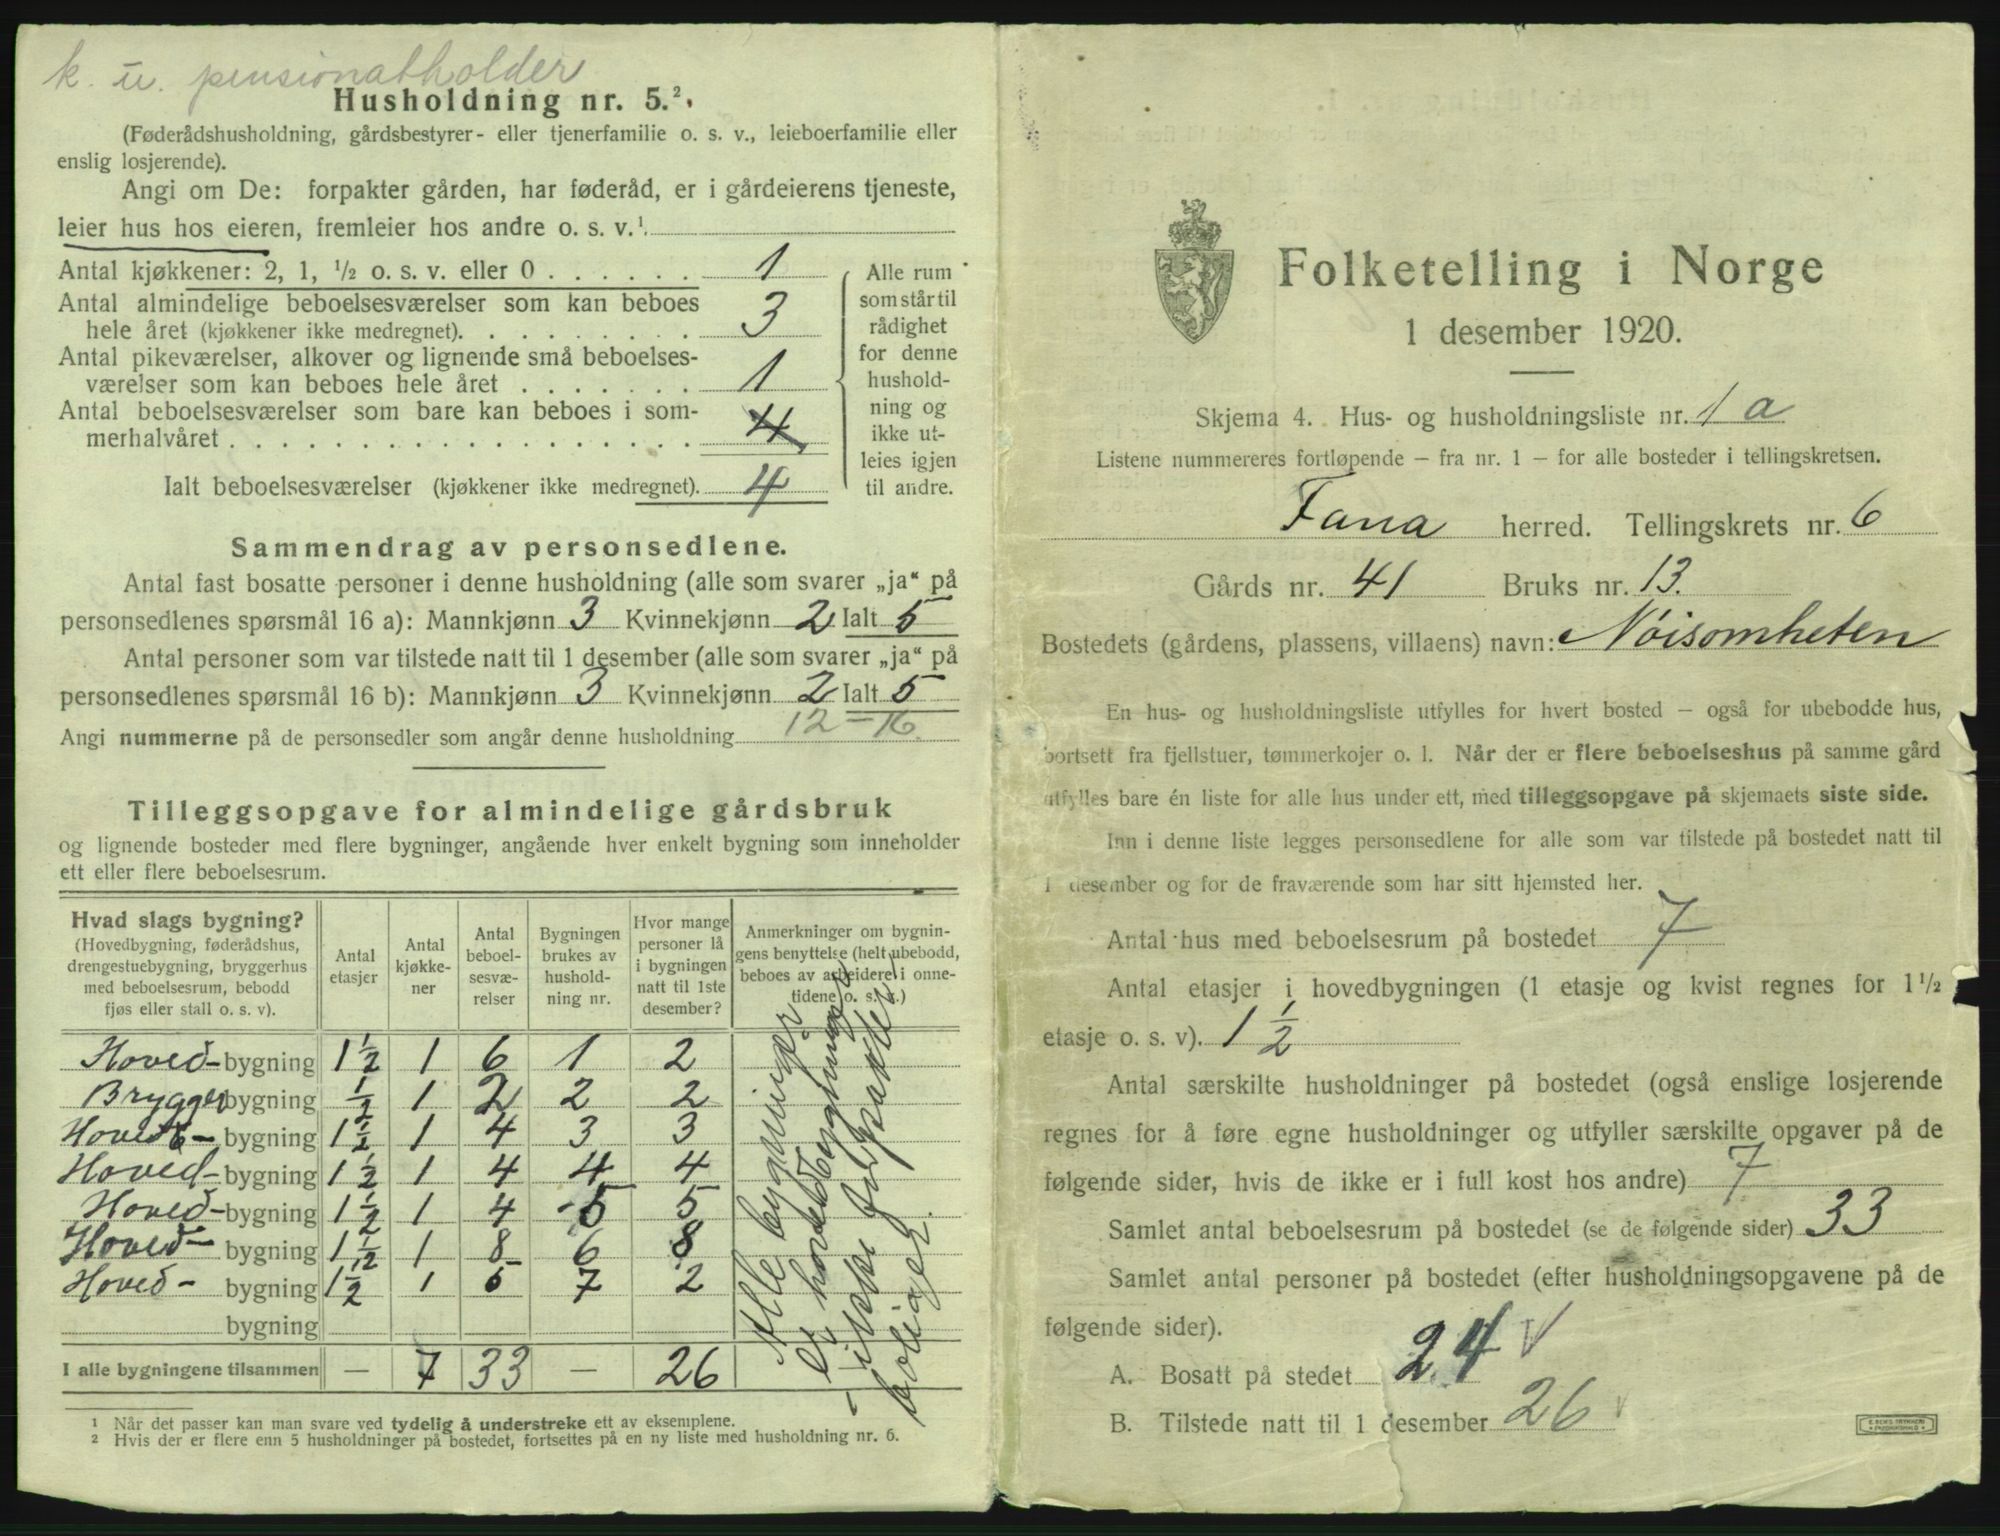 k. u. pensionatholder
Husholdning nr. 5.²
(Føderådshusholdning, gårdsbestyrer- eller tjenerfamilie o. s. v., leieboerfamilie eller
enslig losjerende).
Angi om De: forpakter gården, har føderåd, er i gårdeierens tjeneste,
leier hus hos eieren, fremleier hos andre o. s. v.¹
Antal kjøkkener: 2, 1, ½ o. s. v. eller 0 . . . . . . 1
Antal almindelige beboelsesværelser som kan beboes
hele året (kjøkkener ikke medregnet). . . . . . . . . 3
Antal pikeværelser, alkover og lignende små beboelses-
værelser som kan beboes hele året . . . . . . . 1
Antal beboelsesværelser som bare kan beboes i som-
merhalvåret . . . . . . . . . . . . . . . . . . 4
Ialt beboelsesværelser (kjøkkener ikke medregnet). 4
Alle rum
som står til
rådighet
for denne
hushold-
ning og
ikke ut-
leies igjen
til andre.
Sammendrag av personsedlene.
Antal fast bosatte personer i denne husholdning (alle som svarer „ja“ på
personsedlenes spørsmål 16 a): Mannkjønn 3 Kvinnekjønn 2 Ialt 5
Antal personer som var tilstede natt til 1 desember (alle som svarer „ja“ på
personsedlenes spørsmål 16 b): Mannkjønn 3 Kvinnekjønn 2 Ialt 5
Angi nummerne på de personsedler som angår denne husholdning 12 – 16.
Tilleggsopgave for almindelige gårdsbruk
og lignende bosteder med flere bygninger, angående hver enkelt bygning som inneholder
ett eller flere beboelsesrum.
Hvad slags bygning?
(Hovedbygning, føderådshus,
drengestuebygning, bryggerhus
med beboelsesrum, bebodd
fjøs eller stall o. s. v).
Antal
etasjer
Antal
kjøkke-
ner
Antal
beboel-
sesvæ-
relser
Bygningen
brukes av
hushold-
ning nr.
Hvor mange
personer lå
i bygningen
natt til 1ste
desember?
Anmerkninger om bygnin-
gens benyttelse (helt ubebodd,
beboes av arbeidere i onne-
tidene o. s. v.)
Hoved-bygning 1½ 1 6 1 2
Bryggerbygning ½ 1 2 2 2
Hoved- bygning 1½ 1 4 3 3
Hoved- bygning 1½ 1 4 4 4
Hoved-bygning 1½ 1 4 5 5
Hoved- bygning 1½ 1 8 6 8
Hoved- bygning 1½ 1 5 7 2
bygning
I alle bygningene tilsammen — 7 33 — 26
Alle bygninger
er hovedbygninger
– ikke forpakter
boliger.
¹ Når det passer kan man svare ved tydelig å understreke ett av eksemplene.
² Hvis der er flere enn 5 husholdninger på bostedet, fortsettes på en ny liste med husholdning nr. 6.
Folketelling i Norge
1 desember 1920.
Skjema 4. Hus- og husholdningsliste nr. 1 a
Listene nummereres fortløpende — fra nr. 1 — for alle bosteder i tellingskretsen.
Fana herred. Tellingskrets nr. 6
Gårds nr. 41 Bruks nr. 13.
Bostedets (gårdens, plassens, villaens) navn: Nøisomheten
En hus- og husholdningsliste utfylles for hvert bosted — også for ubebodde hus,
bortsett fra fjellstuer, tømmerkojer o. l. Når der er flere beboelseshus på samme gård
utfylles bare én liste for alle hus under ett, med tilleggsopgave på skjemaets siste side.
Inn i denne liste legges personsedlene for alle som var tilstede på bostedet natt til
1 desember og for de fraværende som har sitt hjemsted her.
Antal hus med beboelsesrum på bostedet 7
Antal etasjer i hovedbygningen (1 etasje og kvist regnes for 1½
etasje o. s. v). 1 ½
Antal særskilte husholdninger på bostedet (også enslige losjerende
regnes for å føre egne husholdninger og utfyller særskilte opgaver på de
følgende sider, hvis de ikke er i full kost hos andre) 7
Samlet antal beboelsesrum på bostedet (se de følgende sider) 33
Samlet antal personer på bostedet (efter husholdningsopgavene på de
følgende sider).
A. Bosatt på stedet 24 V
B. Tilstede natt til 1 desember 26 v